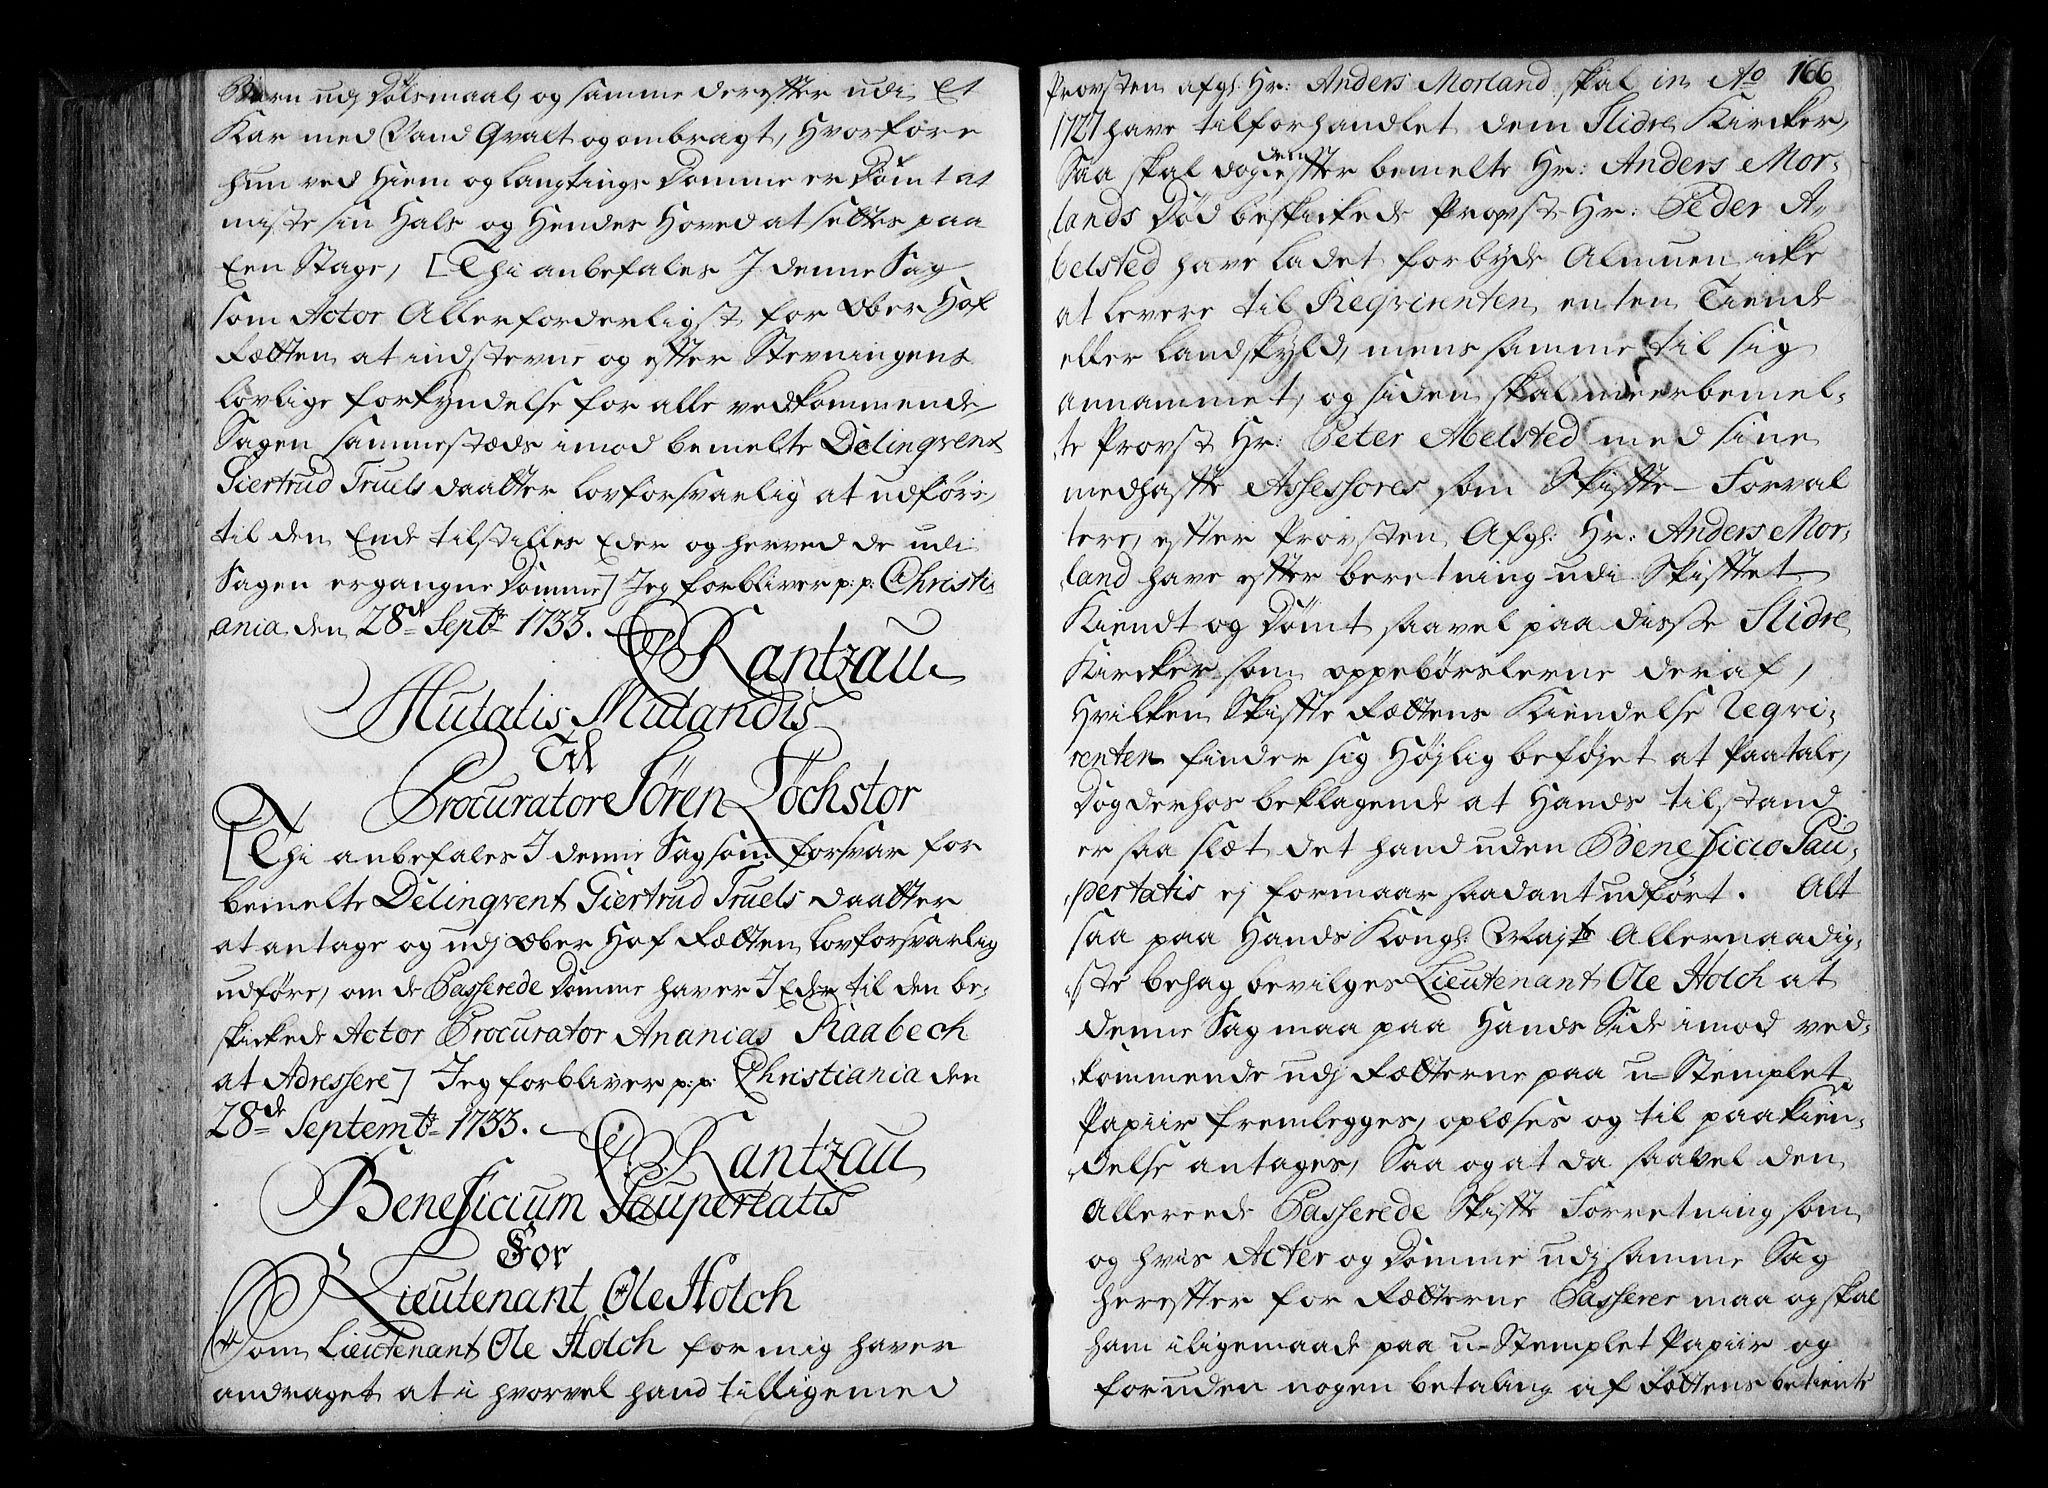 Barn udj Dølsmaal, og samme derefter udi et
Kar med Vand Qvalt og ombragt, Hvorfore
hun ved Hiem og Langtings Domme er Dømt at
miste sin Hals og Hendes Hoved at settes paa
Een Stage, [Thi anbefales I denne Sag
som Actor Allerforderligst for Ober Hof
Rætten at indstevne og efter Stevningens
lovlige forkyndelse for alle vedkommende
Sagen sammestæds imod bemelte Delinqvent
Giertrud Truels daatter lovforsvarlig at udføre,
til den Ende tilstilles Eder og herved de udi
Sagen ergangne Domme] Jeg forbliver p: p: Christi-
ania den 28de Septbr 1733.
C Rantzau
Mutatis Mutandis
Til
Procurator Sören Löchstor
[Thi anbefales I denne Sag som forsvar for
bemelte Delinqvent Giertrud Truels daatter
at antage og udj Ober Hof Rætten lovforsvarlig
udføre, om de Passerede Domme haver I Eder til den be-
skickede Actor Procurator Ananias Raabech
at Adressere] Jeg forbliver p: p: Christiania den
28de Septembr 1733.
C Rantzau
Beneficium Paupertatis
For
Lieutenant Ole Holch
Som Lieutenant Ole Holch for mig haver
andraget at i hvorvel hand tilligemed
166
Provsten afgl: Hr: Anders Morland skal in Ao
1727 have tilforhandlet dem Slidre Kircker,
Saa skal dog den efter bemelte Hr: Anders Mor-
lands Død beskickede Provst Hr: Peder A-
belsted have ladet forbyde Almuen icke
at levere til Reqvirenten enten Tiende
eller Landskyld, mens samme til sig
annammet, og siden skal meerbemel-
te Provst Hr: Peter Abelsted med sine
medhafte Assessores som Skifte-Forval
tere, efter Provsten Afgl: Hr: Anders Mor-
land have efter beretning udi Skiftet
Kiendt og Dømt saavel paa disse Slidre
Kircker som oppebørslerne deraf,
Hvilken Skifte Rættens Kiendelse Reqvi-
renten finder sig Højlig beføjet at Paatale,
Dog derhos beklagende at Hands tilstand
er saa slæt det hand uden Beneficio Pau-
pertatis ej formaar saadant udført. Alt
saa paa Hands Kongl: Majts Allernaadig-
ste behag bevilges Lieutenant Ole Holch at
denne Sag maa paa Hands Side imod ved-
kommende udj Rætterne paa u-Stemplet
Papiir fremlegges, oplæses og til paakien-
delse antages, Saa og at da saavel den
Allereede Passerede Skifte Forretning som
og hvis Acter og Domme udj samme Sag
herefter for Rætterne Passerer maa og skal
ham iligemaade paa u-Stemplet Papiir og
foruden nogen betaling af Rættens betiente